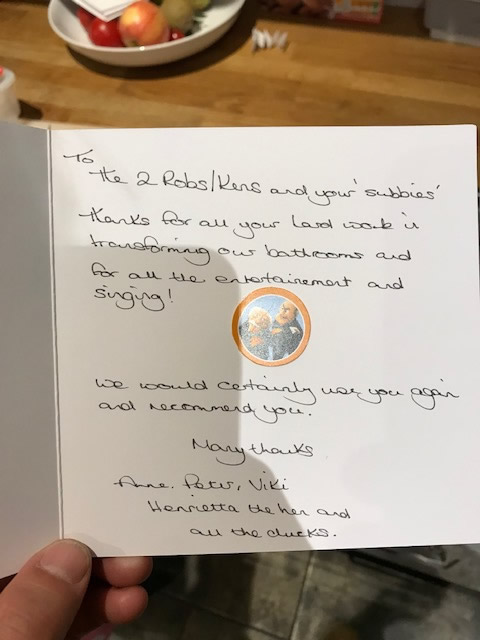 To
the 2 Robs/Kens and your 'subbies'
thanks for all your hard work in
transforming our bathrooms and
for all the entertainement and
singing!
we would certainly use you again
and recommend you.
Many thanks
Anne, Peter, Viki
Henrietta the hen and
all the ducks.